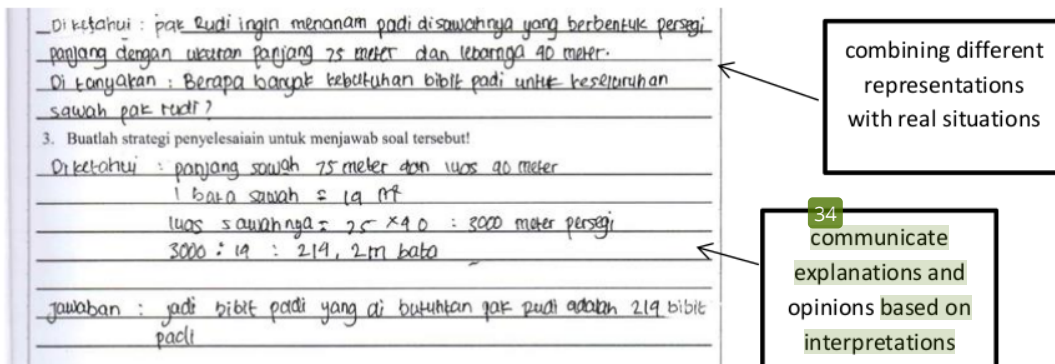 Diketahui : pak Rudi ingin menanam padi disawahnya yang berbentuk persegi
panjang dengan ukuran panjang 75 meter dan lebarnya 40 meter.
Di tanyakan : Berapa banyak kebutuhan bibit padi untuk keseluruhan
sawah pak rudi?
3. Buatlah strategi penyelesaiain untuk menjawab soal tersebut!
Diketahui : panjang sawah 75 meter dan luas 40 meter
1 bata sawah = 14 m²
luas sawahnya = 75 × 40 : 3000 meter persegi
3000 : 14 : 214, 2 m bata
Jawaban : jadi bibit paddi yang di butuhkan pak rudi adalah 214 bibit
padi
combining different
representations
with real situations
34
communicate
explanations and
opinions based on
interpretations